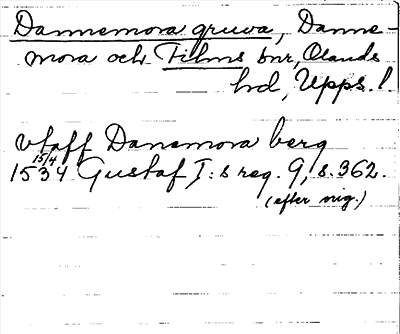 Dannemora gruva, Danne-
mora och Films snr, Olands
hd, Upps. l.
vtaff Danemora berg
15/4
1534 Gustaf I:s reg. 9, s. 362.
(efter orig.)